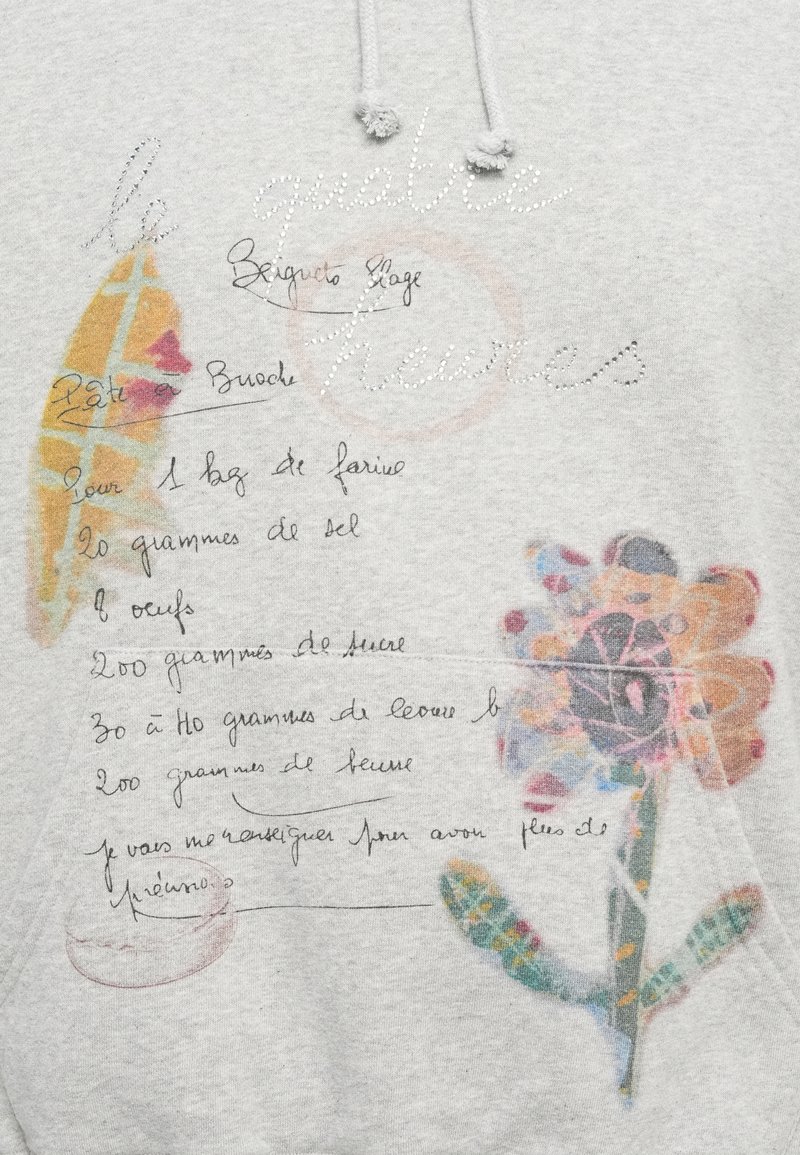 le quatre
heures
Beignets Plage
Pâte à Brioche
Pour 1 kg de farine
20 grammes de sel
8 oeufs
200 grammes de sucre
30 à 40 grammes de levure b
200 grammes de beurre
je vais me renseigner pour avoir plus de
précisions